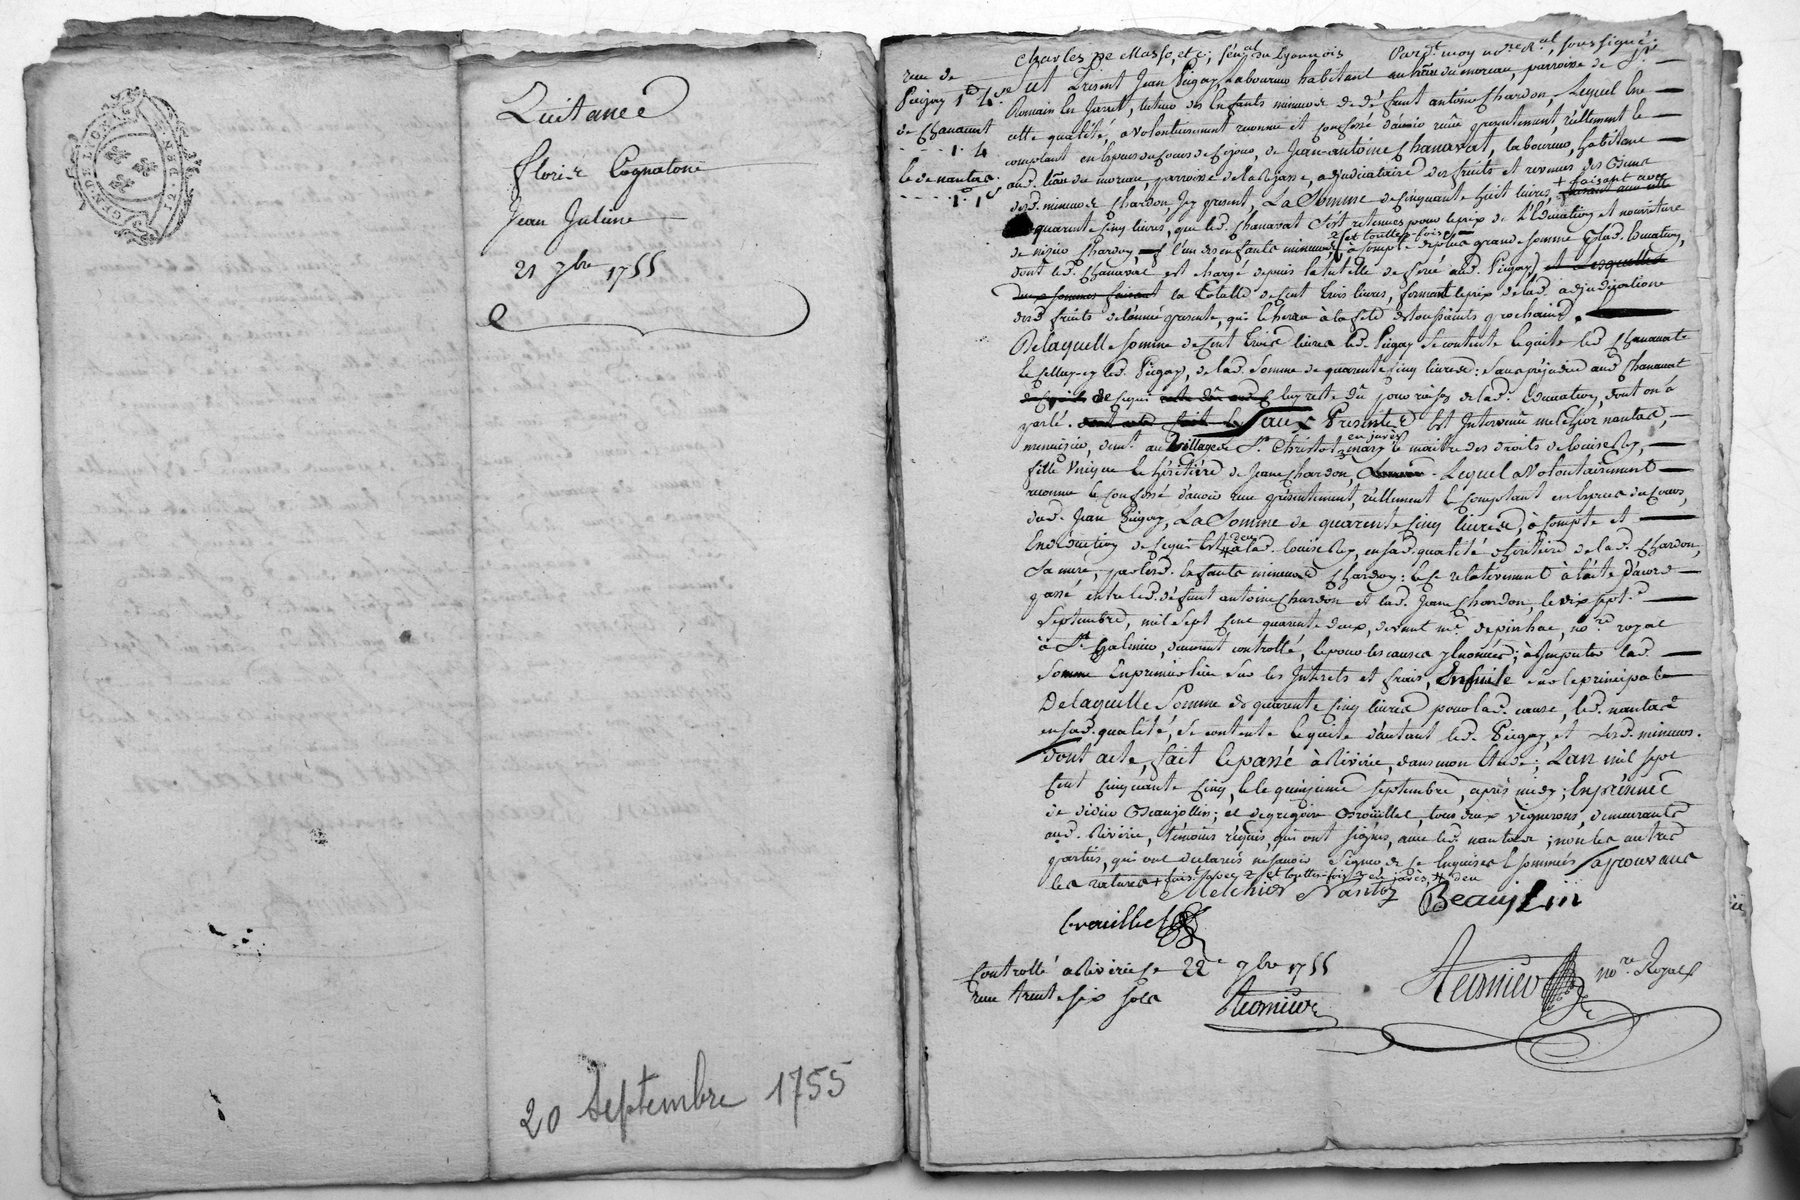 GEN. DE LION
Quitance
florie Cognatone
Jean Juline
21 7bre 1755
20 Septembre 1755
rue de
Pitigay 1d 4s
de Chanavat
1. 4
le de nantas
1. 1s
Charles De Masso, etc; sénal du Lyonnois Pardt moy nore Ral, soussigné;
fut Présent Jean Pitigay Laboureur habitant au lieu du moreau, parroisse de St
Romain En Jarret, tuteur des Enfants mineurs de défunt antoine Chardon, Lequel En
cette qualité, a volontairement reconnu et confessé d'avoir reçu présentement, réellement et
comptant en Espèces du Cours de ce jour, de Jean-antoine Chanavat, laboureur, habitant
aud. lieu du moreau, parroisse de la Rajasse, adjudicataire des fruits et revenus des Biens
desd. mineurs Chardon Icy présent, La Somme de cinquante huit livres, + faisant avec
quarente cinq livres, que led. Chanavat s'est retenues pour le prix de L'éducation et nourriture
de Chardon, l'un desd enfants mineurs, 2 (et touttes fois à compte de plus grande somme de lad. Education,
dont led. Chanavat est chargé depuis la tutelle déferée aud. Pitigay), et lesquelles
deux sommes faisant la totalle de Cent trois livres, formant le prix de lad adjudication
desd fruits de l'année présente, qui Echerra à la fête de toussaints prochaine.
De laquelle somme de Cent trois livres led. Pitigay se contente Equite led Chanavat
et celluy-cy led. Pitigay, de lad. Somme de quarente cinq livres: sans préjudice aud Chanavat
de ce qui luy reste dû pour raison de lad. Education, dont on a
parlé. Sauf Présent Est Intervenu melchior nantas,
menuisier, demt au village de St Christot en jarès, maître des droits de Louise Rey,
fille unique Et héritière de Jeane Chardon, Lequel volontairement
reconnu Et confessé d'avoir reçu présentement, réellement Et comptant en Espèces du Cours,
dud. Jean Pitigay, La Somme de quarente cinq livres, à compte et
En déduction de ce qui Est # deu à lad. Louise Rey, en sad. qualité d'héritière de lad. Chardon,
Sa mère, par lesd. Enfants mineurs Chardon: Et ce relativement à l'acte d'acord
passé entre led. défunt antoine Chardon et lad. Jeane Chardon, le dix sept
Septembre, mil sept Cent quarente deux, devant me depinhac, nore royal
à St Chalmier, duement controllé, Et pour les causes y énoncées; à Imputer lad.
Somme En premier lieu sur les Interets et frais, Ensuite sur le principal
De laquelle Somme de quarente cinq livres pour lad. cause, led. nantas
en sad. qualité, se contente Equite d'autant led. Pitigay, et lesd. mineurs.
Dont acte, fait Et passé à Riviere, dans mon Etude; L'an mil sept
Cent cinquante cinq, Et le quinzieme septembre, après midy; En présence
de didier Beaujollin; et de gregoire Crouillet, tous deux vignerons, demeurants
aud. Riverie, témoins requis, qui ont signés, avec led. nantas; non les autres
parties, qui ont declarés ne savoir signer de ce Enquises Et sommées aprouvans
les ratures + faisant avec 2 et touttes fois en jarès, # deu
Melchior Nantas Beaujolin
Crouillet
Controllé a Riverie le 22e 7bre 1755
reçu trente six sols
nore Royal